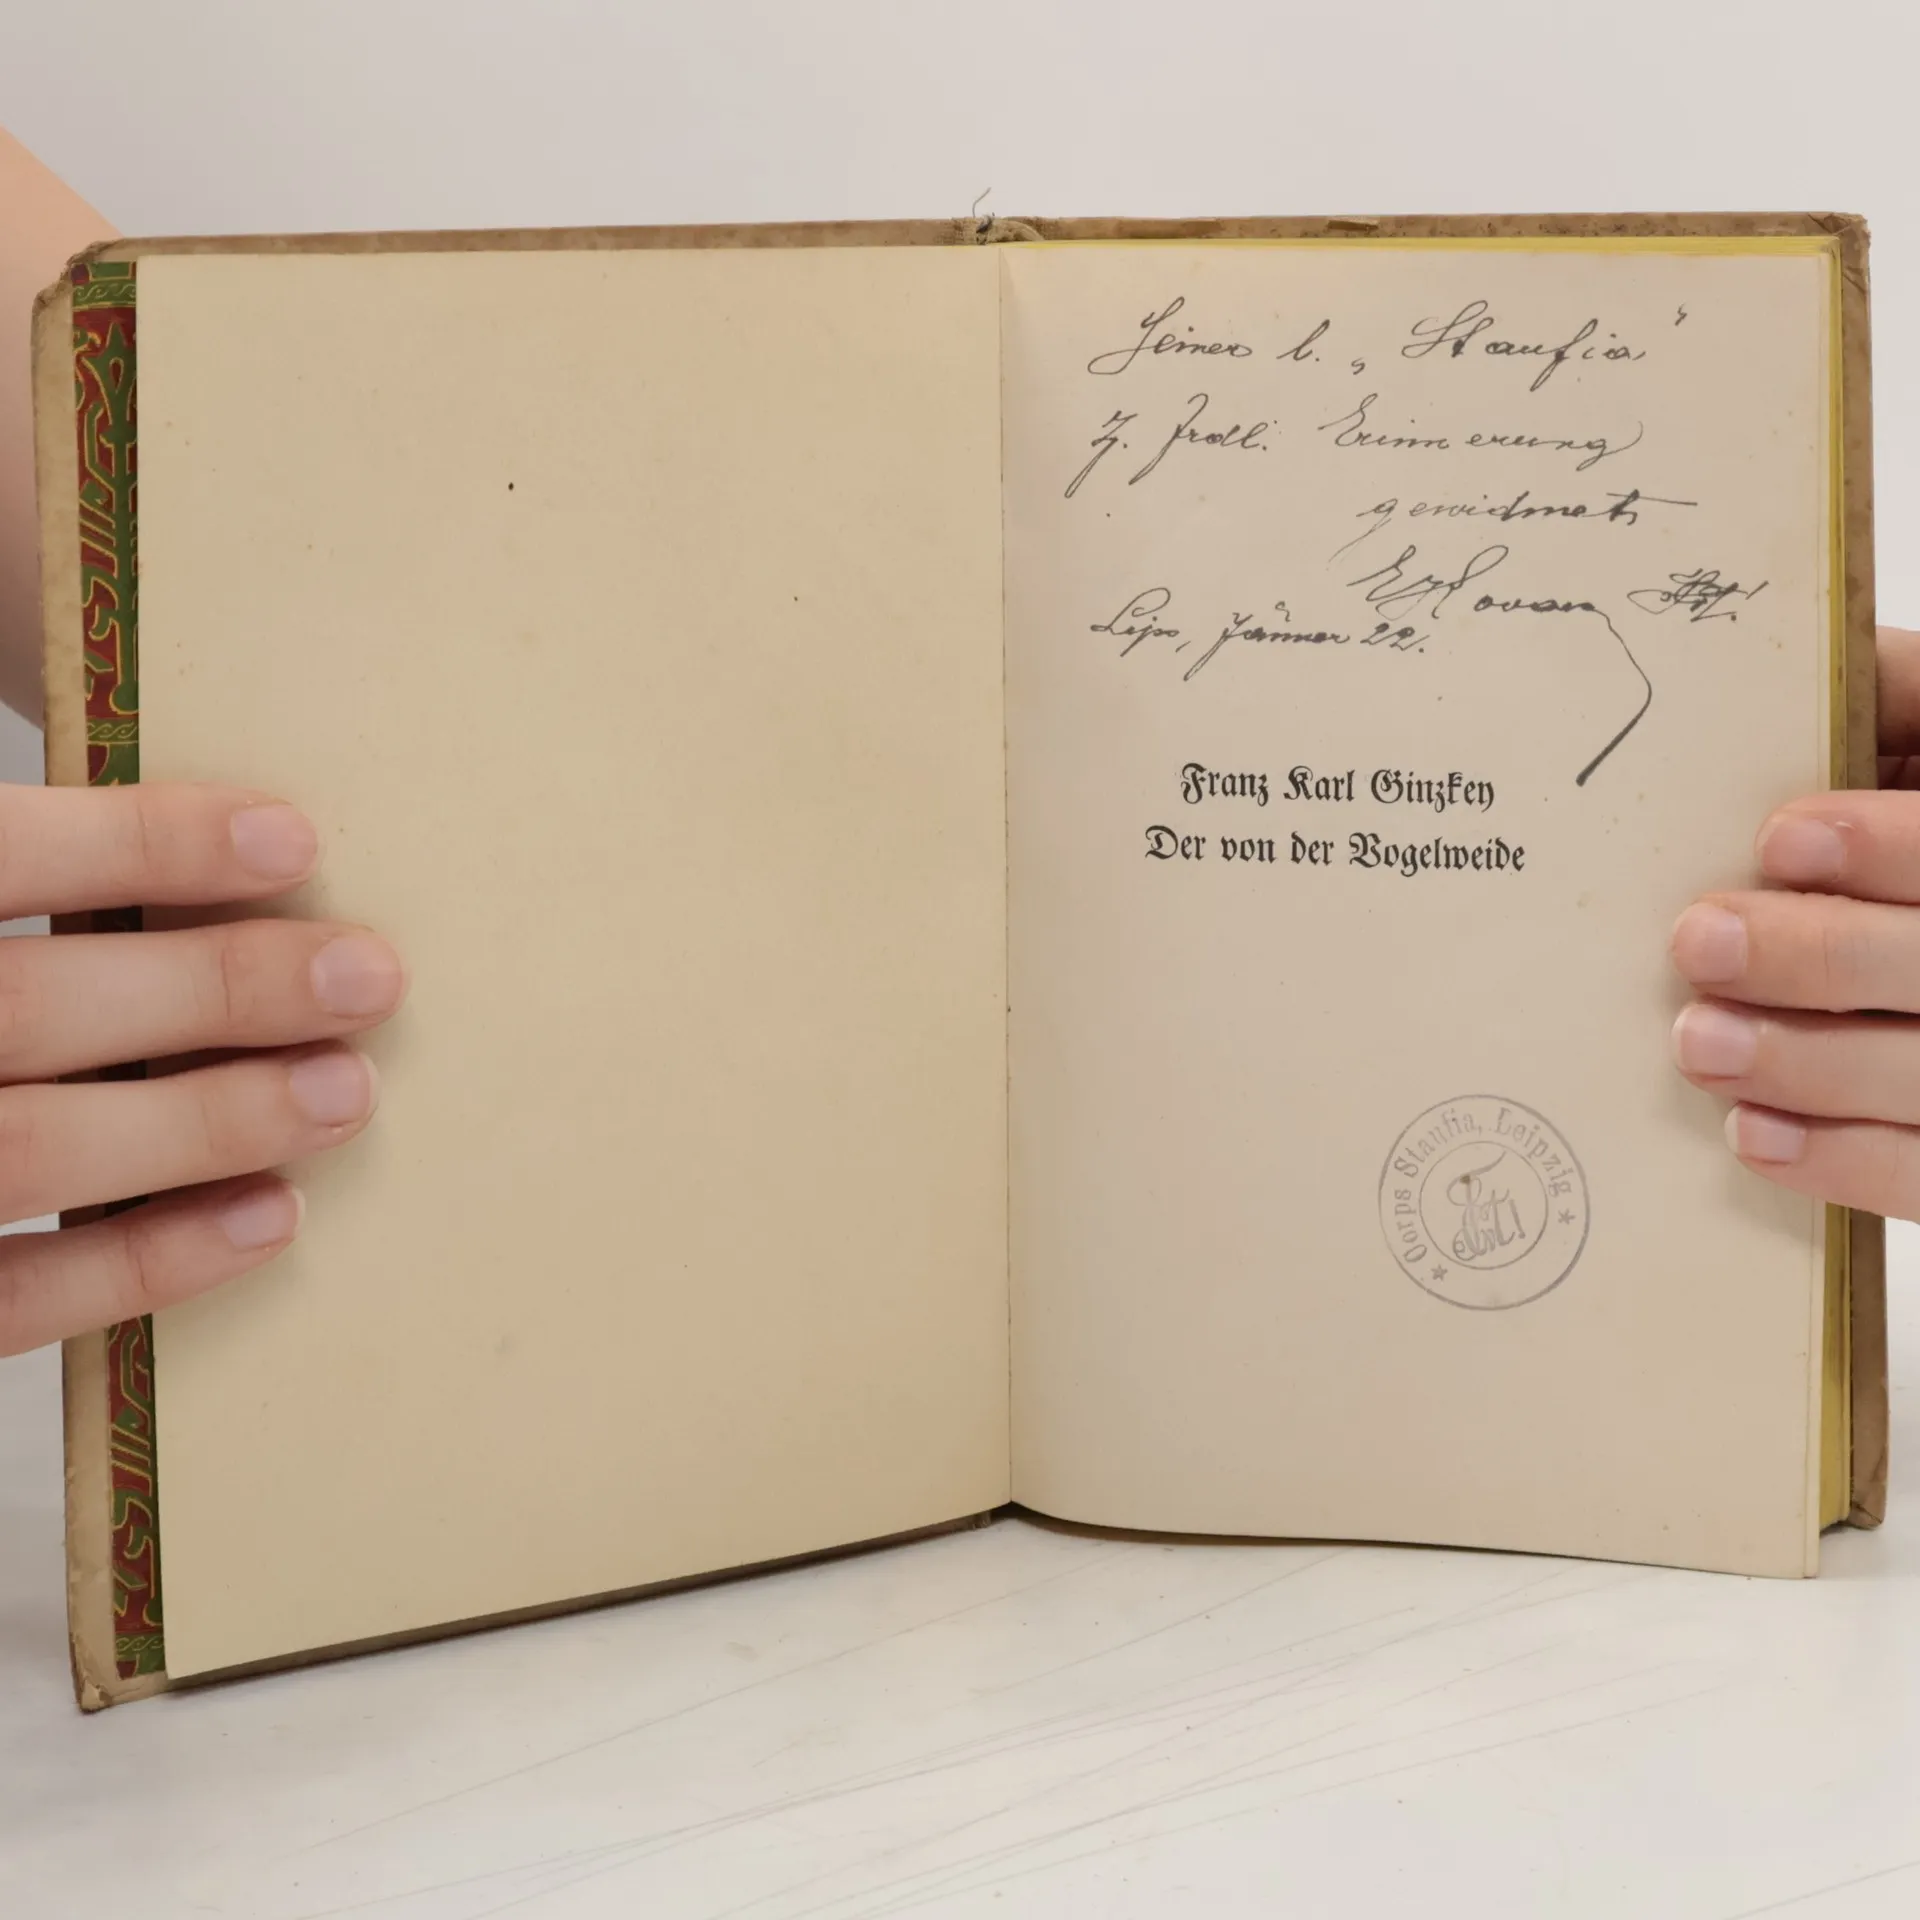 Seiner l. „Staufia"
z. frdl. Erinnerung
gewidmet
Lips, Jänner 22.
Franz Karl Ginzkey
Der von der Vogelweide
Corps Staufia, Leipzig